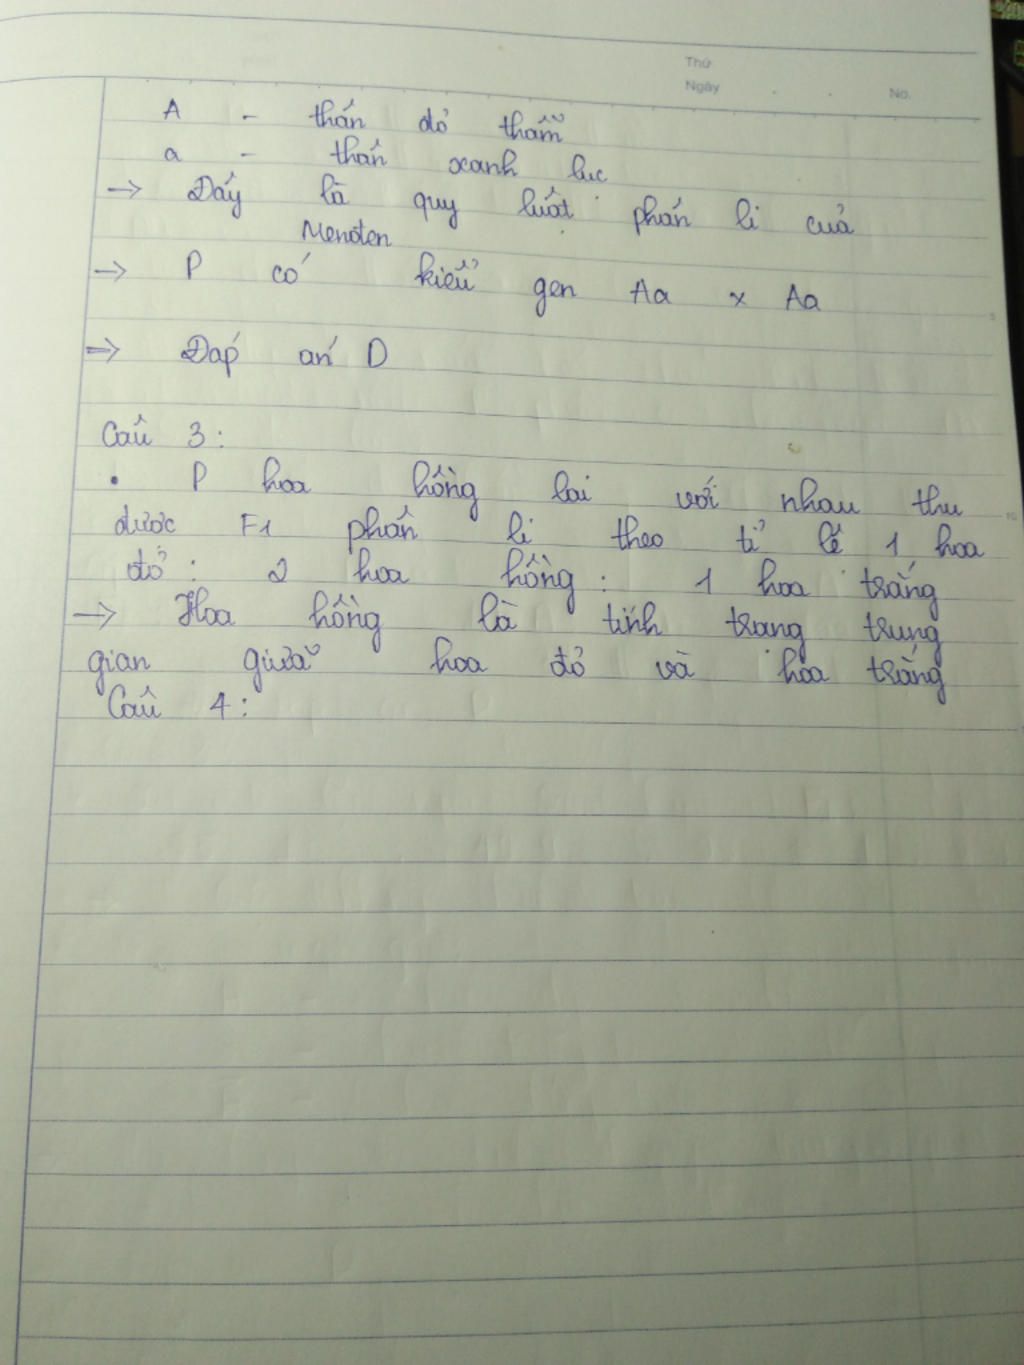 Thứ
Ngày No.
A - thân đỏ thẫm
a - thân xanh lục
→ Đây là quy luật phân li của
Menđen
→ P có kiểu gen Aa x Aa
⇒ Đáp án D
Câu 3:
• P hoa hồng lai với nhau thu
được F1 phân li theo tỉ lệ 1 hoa
đỏ: 2 hoa hồng: 1 hoa trắng
→ Hoa hồng là tính trạng trung
gian giữa hoa đỏ và hoa trắng
Câu 4: